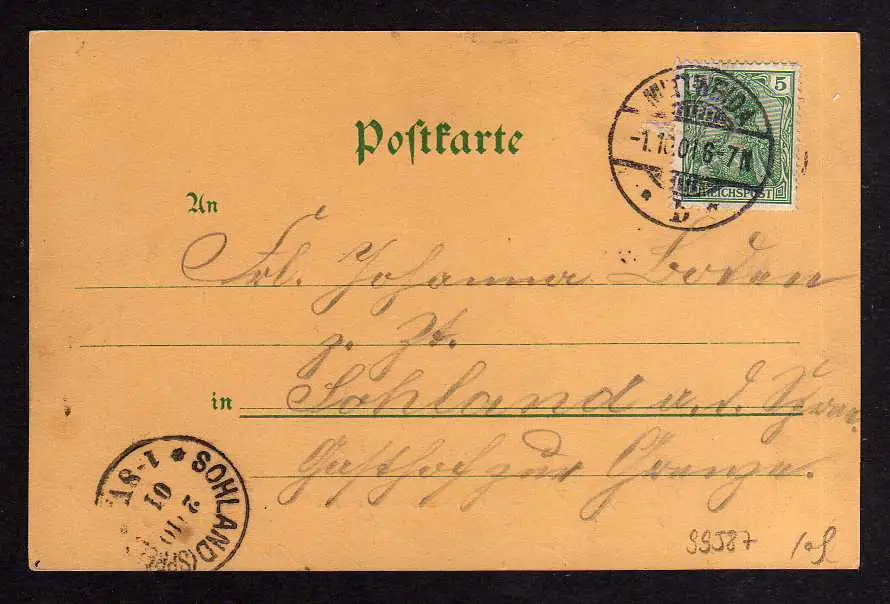 5
MITTWEIDA
-1.10.01 6-7N
* b *
REICHSPOST
Postkarte
An
Frl. Johanna Boden
z. Zt.
in Sohland a. d. Spree
Gasthof zur Grenze.
SOHLAND (SPREE
2 10
01
1-8V
*
99587